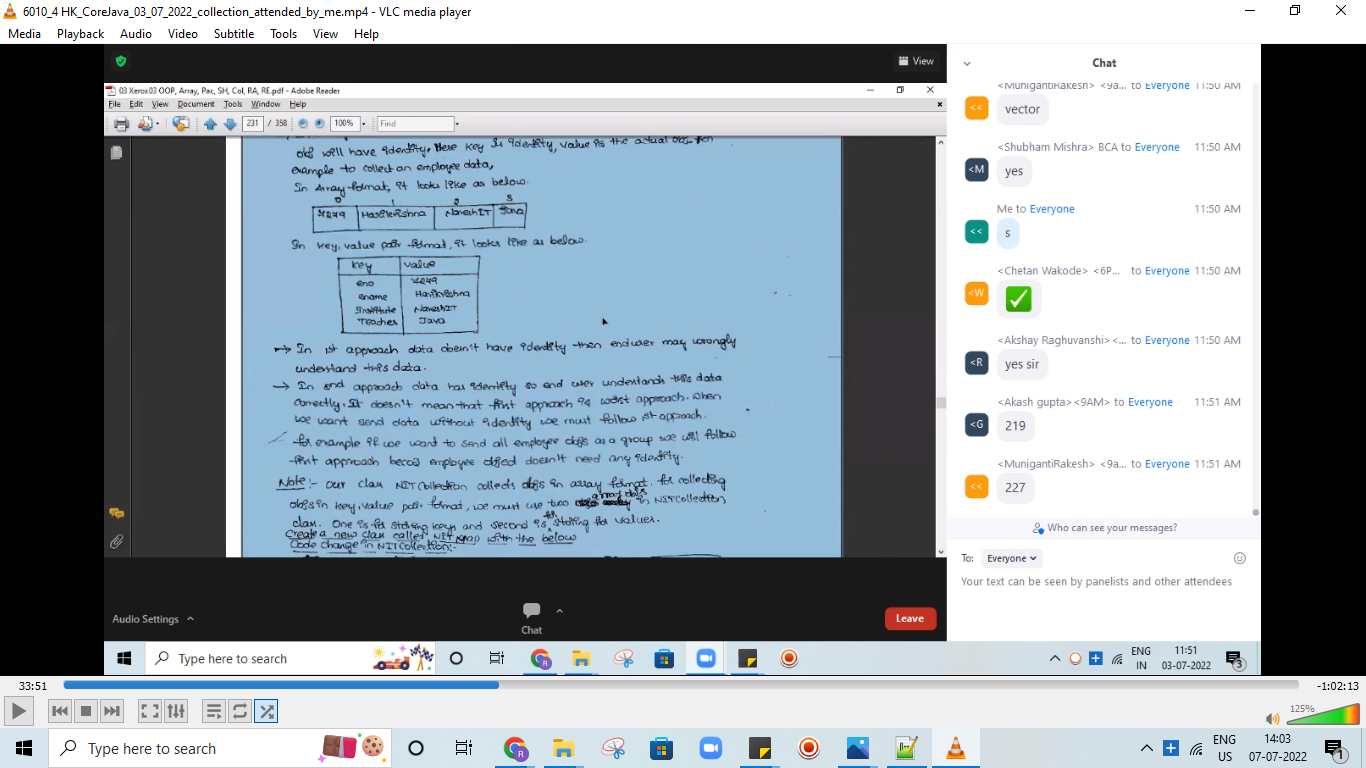 6010_4 HK_CoreJava_03_07_2022_collection_attended_by_me.mp4 - VLC media player
Media Playback Audio Video Subtitle Tools View Help
View
03 Xerox03 OOP, Array, Pac, SH, Col, RA, RE.pdf - Adobe Reader
File Edit View Document Tools Window Help
231 / 358 100% Find
obj will have identity. Here key is identity, value is the actual obj. for
example to collect an employee data,
In Array format, it looks like as below.
0 1 2 3
7279 HariKrishna NareshIT Java
In key, value pair format, it looks like as below.
key value
eno 7279
ename HariKrishna
Institute NareshIT
Teaches Java
→ In 1st approach data doesn't have identity then enduser may wrongly
understand this data.
→ In 2nd approach data has identity so end user understands this data
correctly. It doesn't mean that first approach is worst approach. when
we want send data without identity we must follow 1st approach.
for example if we want to send all employee objs as a group we will follow
first approach becoz employee object doesn't need any identity.
Note:- our class NITCollection collects objs in array format. for collecting
objs in key, value pair format, we must use two array objs in NITCollection
class. One is for storing keys and second is for storing for values.
Create a new class called NITMap with the below
Code change in NITCollection:-
Chat
<MunigantiRakesh> <9a... to Everyone 11:50 AM
<< vector
<Shubham Mishra> BCA to Everyone 11:50 AM
<M yes
Me to Everyone 11:50 AM
<< s
<Chetan Wakode> <6P... to Everyone 11:50 AM
<W
<Akshay Raghuvanshi> <... to Everyone 11:50 AM
<R yes sir
<Akash gupta><9AM> to Everyone 11:51 AM
<G 219
<MunigantiRakesh> <9a... to Everyone 11:51 AM
<< 227
Who can see your messages?
To: Everyone
Your text can be seen by panelists and other attendees
Audio Settings Chat Leave
Type here to search
ENG
IN
11:51
03-07-2022
3
33:51 -1:02:13
125%
Type here to search
ENG
US
14:03
07-07-2022
1